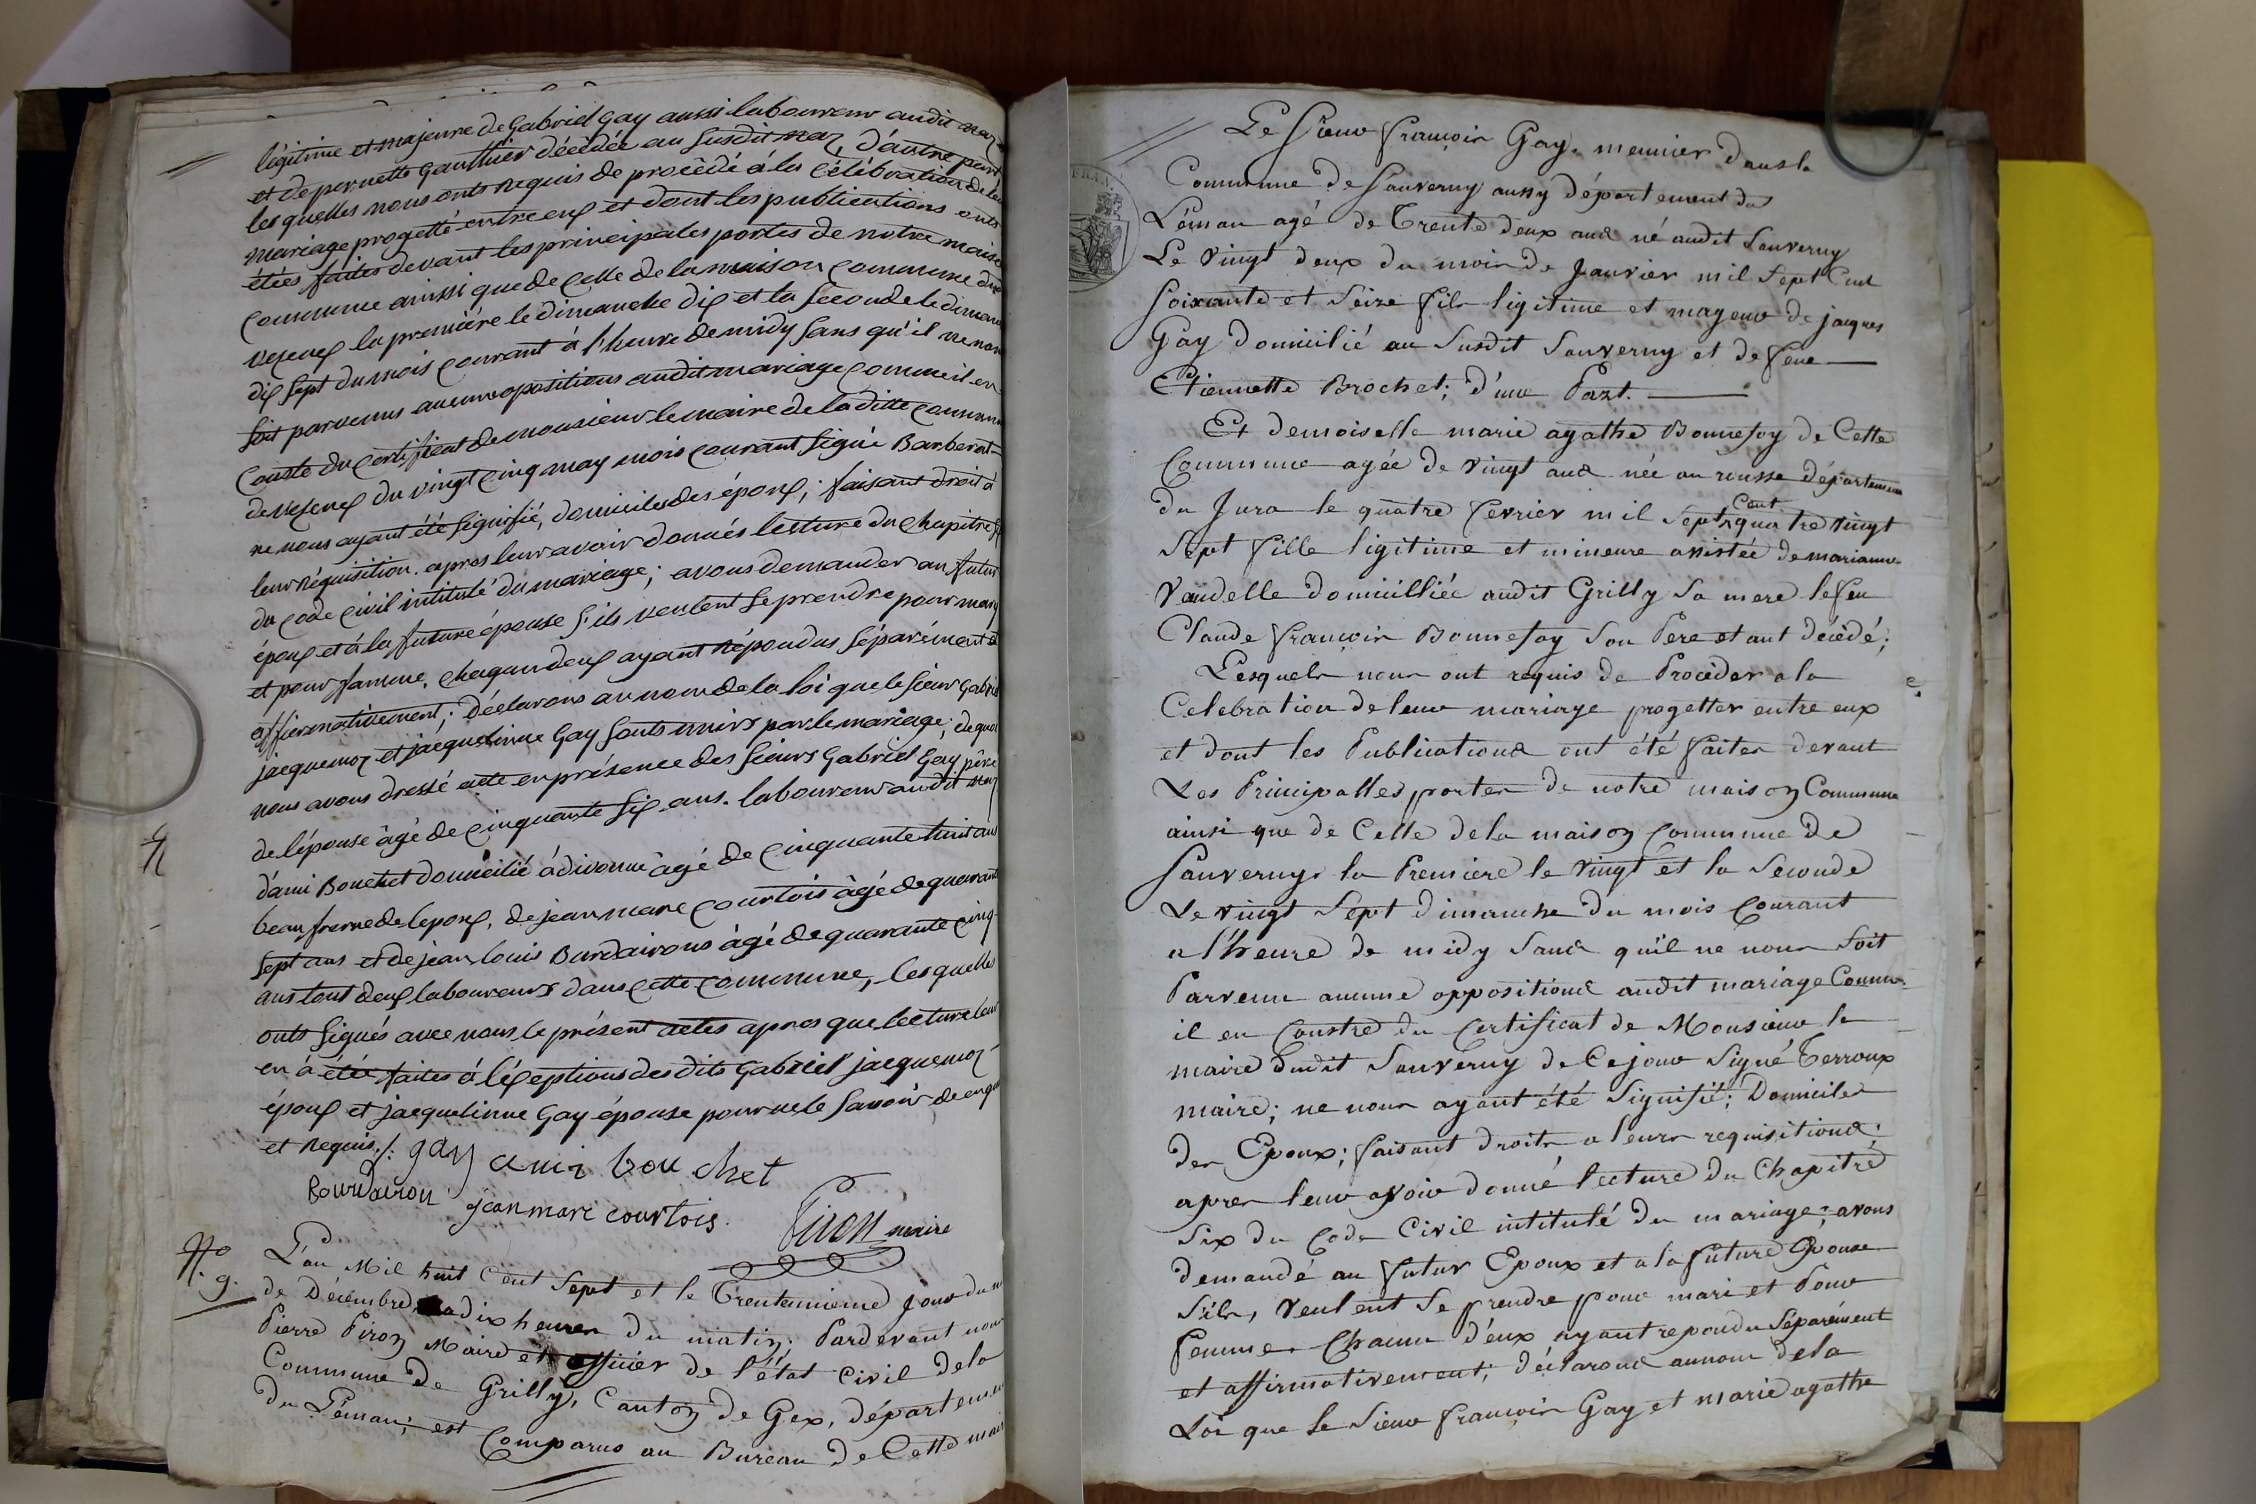 légitime et majeure de Gabriel Gay aussi laboureur audit naz
et de pernette Gauthier décédée au susdit naz, d'autre part
les quelles nous onts requis de procédé à la célébration de leur
mariage progetté entre eux et dont les publications onts
étées faites devant les principales portes de notre maison
commune ainssi que de celle de la maison commune de
vesenex la première le dimanche dix et la seconde le diman
dix sept du mois courant à l'heure de midy sans qu'il ne nous
soit parvenus aucune opositions audit mariage comme il en
conste du certificat de monsieur le maire de la ditte commune
de vesenex du vingt cinq may mois courant signé Barberat
ne nous ayant été signifié, domiciles des époux; faisant droit à
leur réquisition. apres leur avoir donnés lecture du chapitre six
du code civil intitulé du mariage; avons demander au futur
époux et à la future épouse s'ils veulent se prendre pour mary
et pour famme. chaqun deux ayant répondus séparément et
affirmativement; déclarons au nom de la loi que le sieur Gabriel
jacquemoz et jacquelinne Gay sonts unirs par le mariage; de quoi
nous avons dressé acte en présence des sieurs Gabriel Gay père
de l'épouse âgé de cinquante six ans. laboureur audit naz
d'ami Bouchet domicilié à divonne âgé de cinquante huit ans
beau frerre de lepoux, de jean marc courtois âgé de quarant
sept ans et de jean louis Burdairons âgé de quarante cinq
ans tout deux laboureurs dans cette commune, les quelles
onts signés avec nous le présent actes apres que lecture leur
en à étée faites à l'éxeptions des dits Gabriel jacquemoz
époux et jacquelinne Gay épouse pour ne le savoir de enquis
et requis ./. gay ami bouchet
Bourdairon jean marc courtois.
Piron maire
N.º 9. L'an Mil huit Cent Sept et le Trentunieme Jour du mois
de Décembre, a dix heures du matin; Pardevant nous
Pierre Piron Maire et officier de l'état Civil de la
Commune de Grilly, Canton de Gex, département
du Léman; est Comparus au Bureau de Cette mairi
Le Sieur François Gay. meunier dans la
Commune de Sauverny aussy département du
Léman agé de Trente deux ans né audit Sauverny
Le Vingt deux du mois de Janvier mil Sept Cent
Soixante et Seize fils ligitime et mageur de jacques
Gay Domicilié au Susdit Sauverny et de feue
Etiennette Brochet; d'une Part.
Et demoiselle marie agathe Bonnefoy de Cette
Commune agée de Vingt ans née au rousse département
du Jura le quatre fevrier mil Sept Cent quatre Vingt
Sept fille ligitime et mineure assistée de marianne
Vandelle domicilliée audit Grilly Sa mere le feu
Claude François Bonnefoy Son Pere etant décédé;
Lesquels nous ont requis de Procéder a la
Celebration de leur mariage progetter entre eux
et dont les Publications ont été faites devant
Les Principalles portes de notre maison Commune
ainsi que de Celle de la maison Commune de
Sauverny. la Premiere le Vingt et la Seconde
Le vingt Sept dimanche du mois Courant
a l'heure de midy Sans qu'il ne nous Soit
Parvenu aucune oppositions audit mariage Comme
il en Constre du Certificat de Monsieur le
maire dudit Sauverny de Ce jour Signé Terroux
maire; ne nous ayant été Signifié; Domiciles
des Epoux; faisant droits a leurs requisitions;
apres leur avoir donné lecture du Chapitre
Six du Code Civil intitulé du mariage; avons
demandé au futur Epoux et a la future Epouse
S'ils, veulent Se prendre pour mari et Pour
femme. Chacun d'eux ayant repondu Séparément
et affirmativement; déclarons au nom de la
Loi que le Sieur François Gay et marie agathe